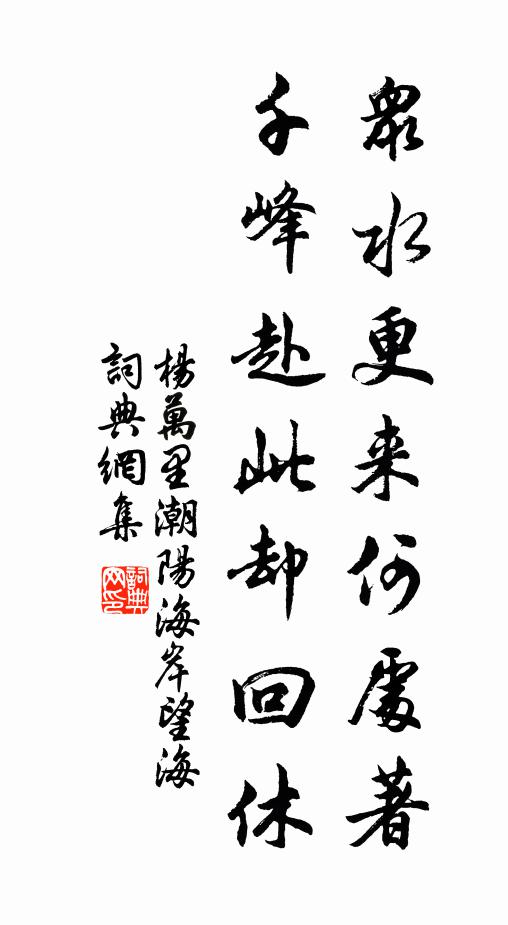 眾水更来何處著
千峰赴此却回休
楊萬里潮陽海岸望海
詞典網集
詞典网印